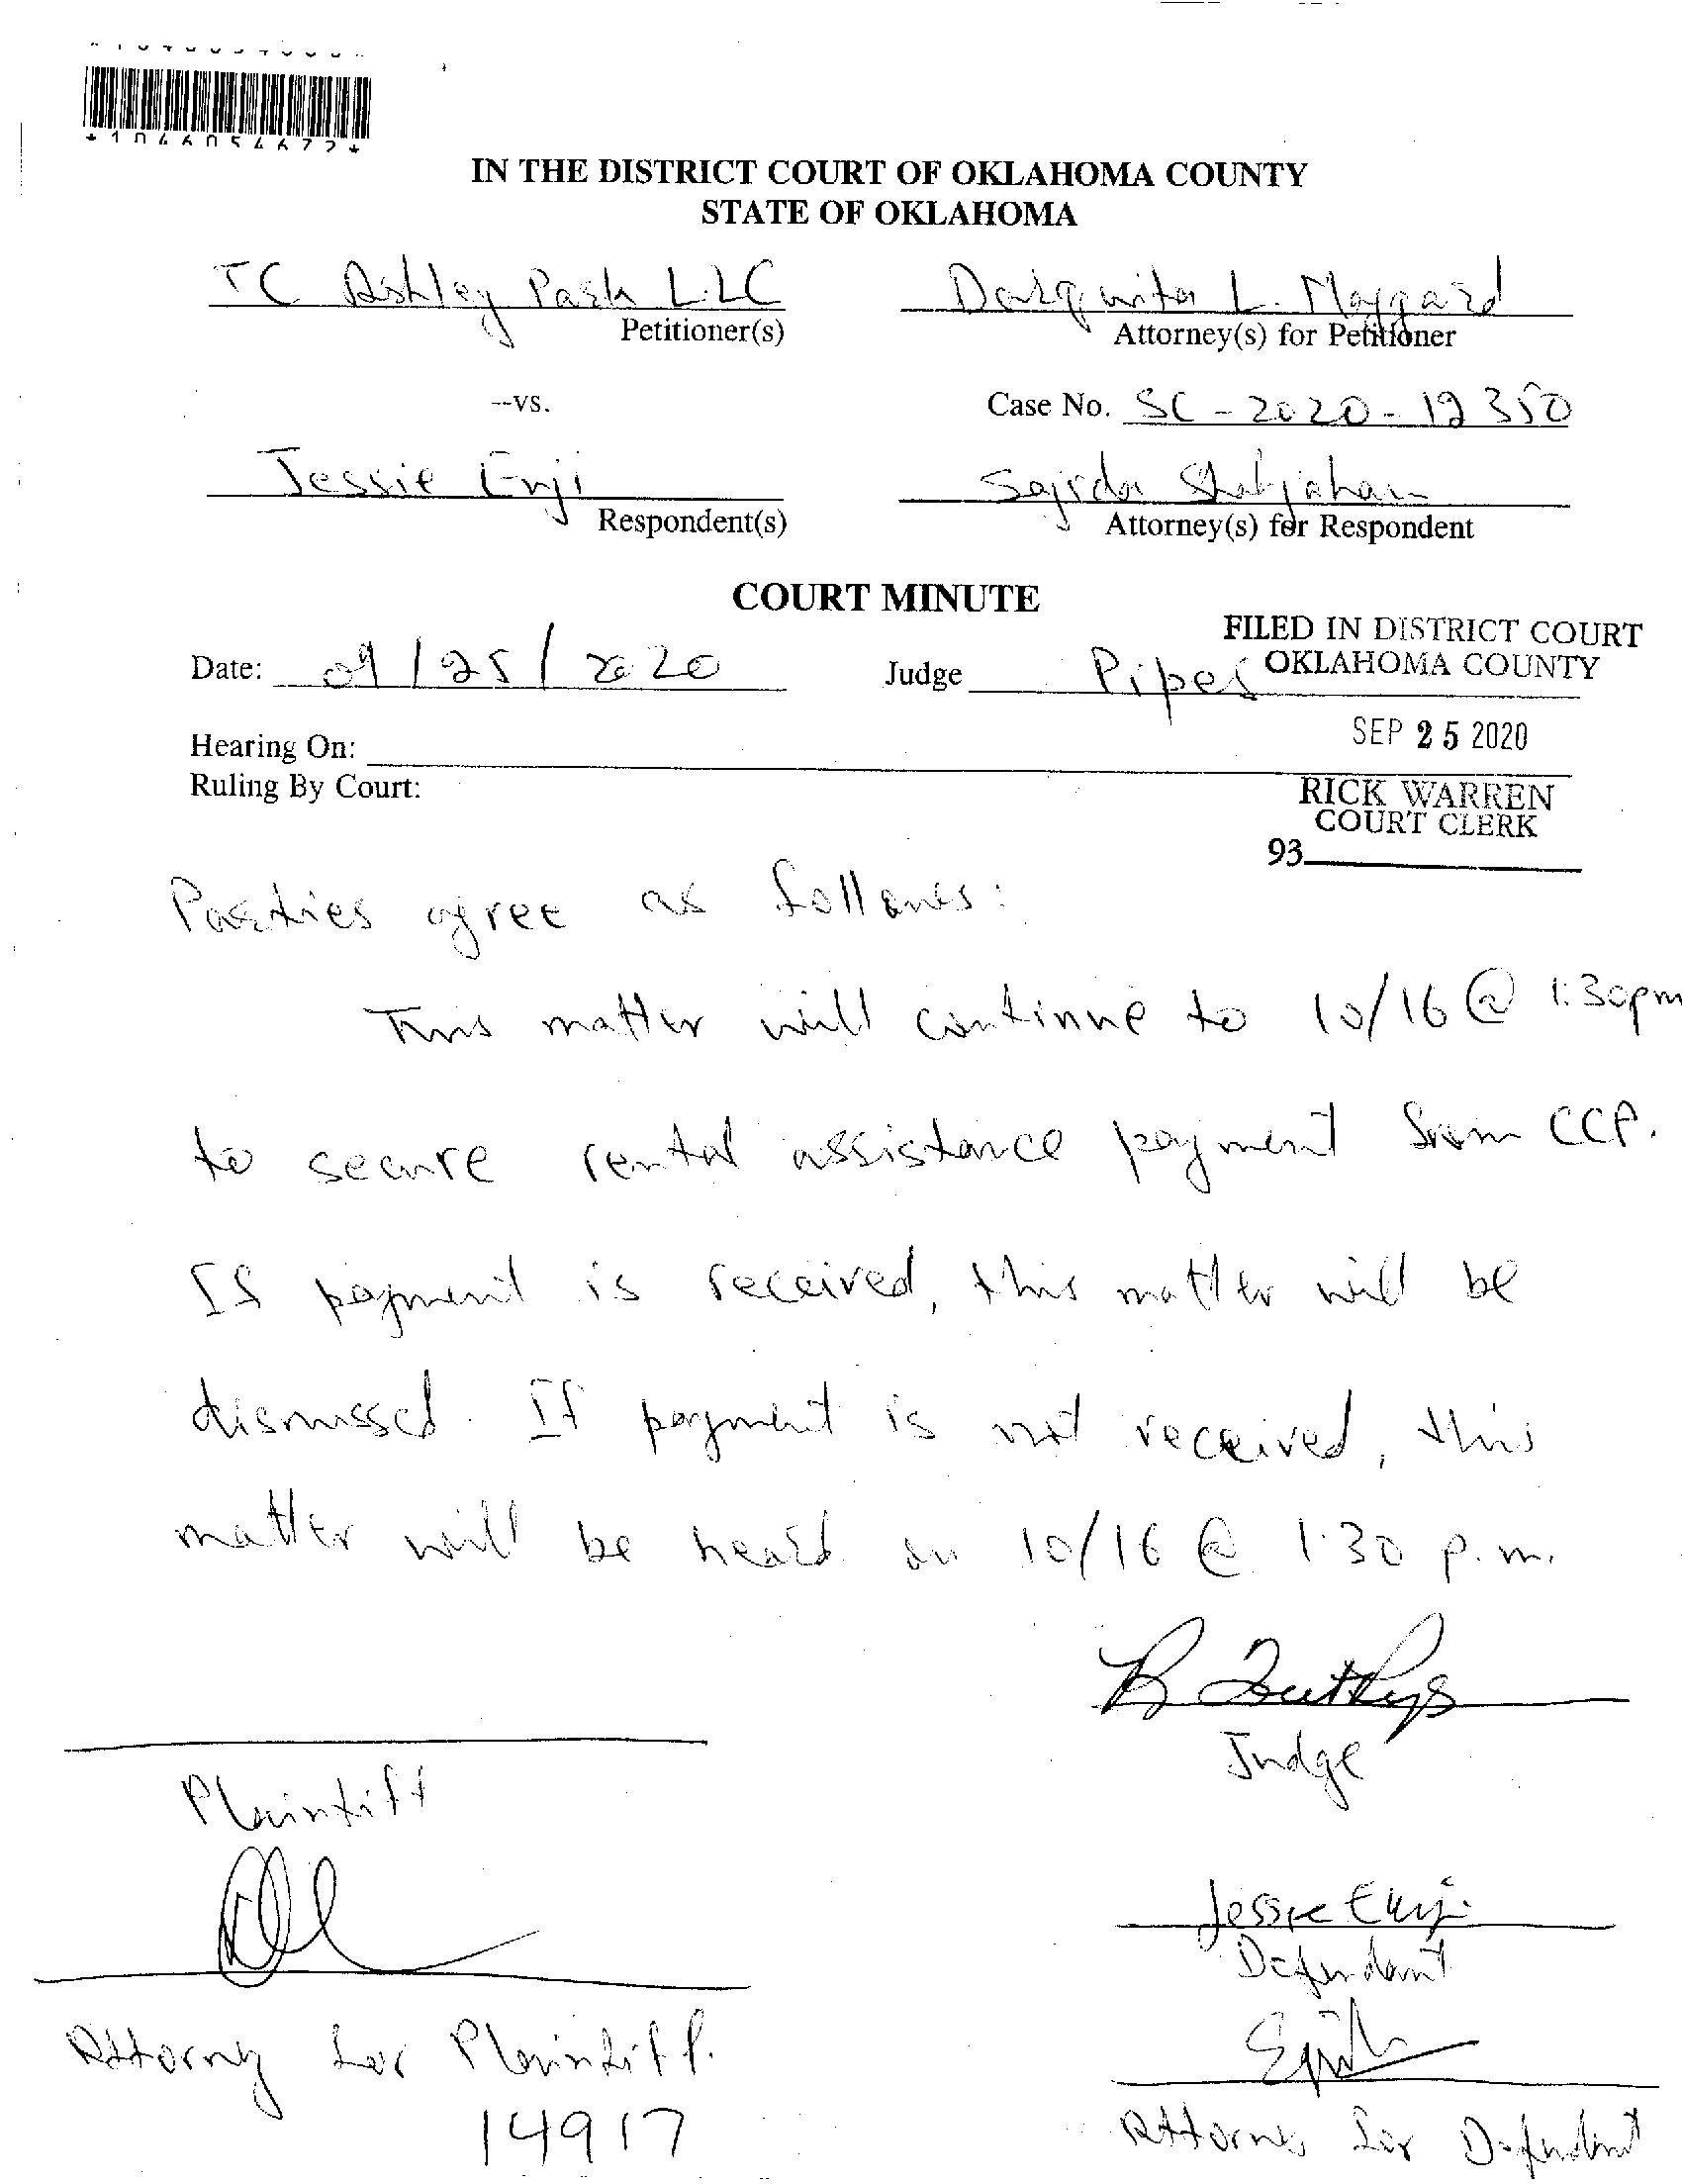 *1046054672*
IN THE DISTRICT COURT OF OKLAHOMA COUNTY
STATE OF OKLAHOMA
TC Ashley Park LLC
Petitioner(s)
Darquita L. Maggard
Attorney(s) for Petitioner
--vs.
Case No. SC-2020-12350
Jessie Enji
Respondent(s)
Sajida Shahjahan
Attorney(s) for Respondent
COURT MINUTE
FILED IN DISTRICT COURT
OKLAHOMA COUNTY
Date: 09/25/2020
Judge Pipes
SEP 25 2020
Hearing On:
Ruling By Court:
RICK WARREN
COURT CLERK
93
Parties agree as follows:
This matter will continue to 10/16 @ 1:30pm
to secure rental assistance payment from CCP.
If payment is received, this matter will be
dismissed. If payment is not received, this
matter will be heard on 10/16 @ 1:30 p.m.
Judge
Plaintiff
Jessie Enji
Defendant
Attorney for Plaintiff.
14917
Attorney for Defendant